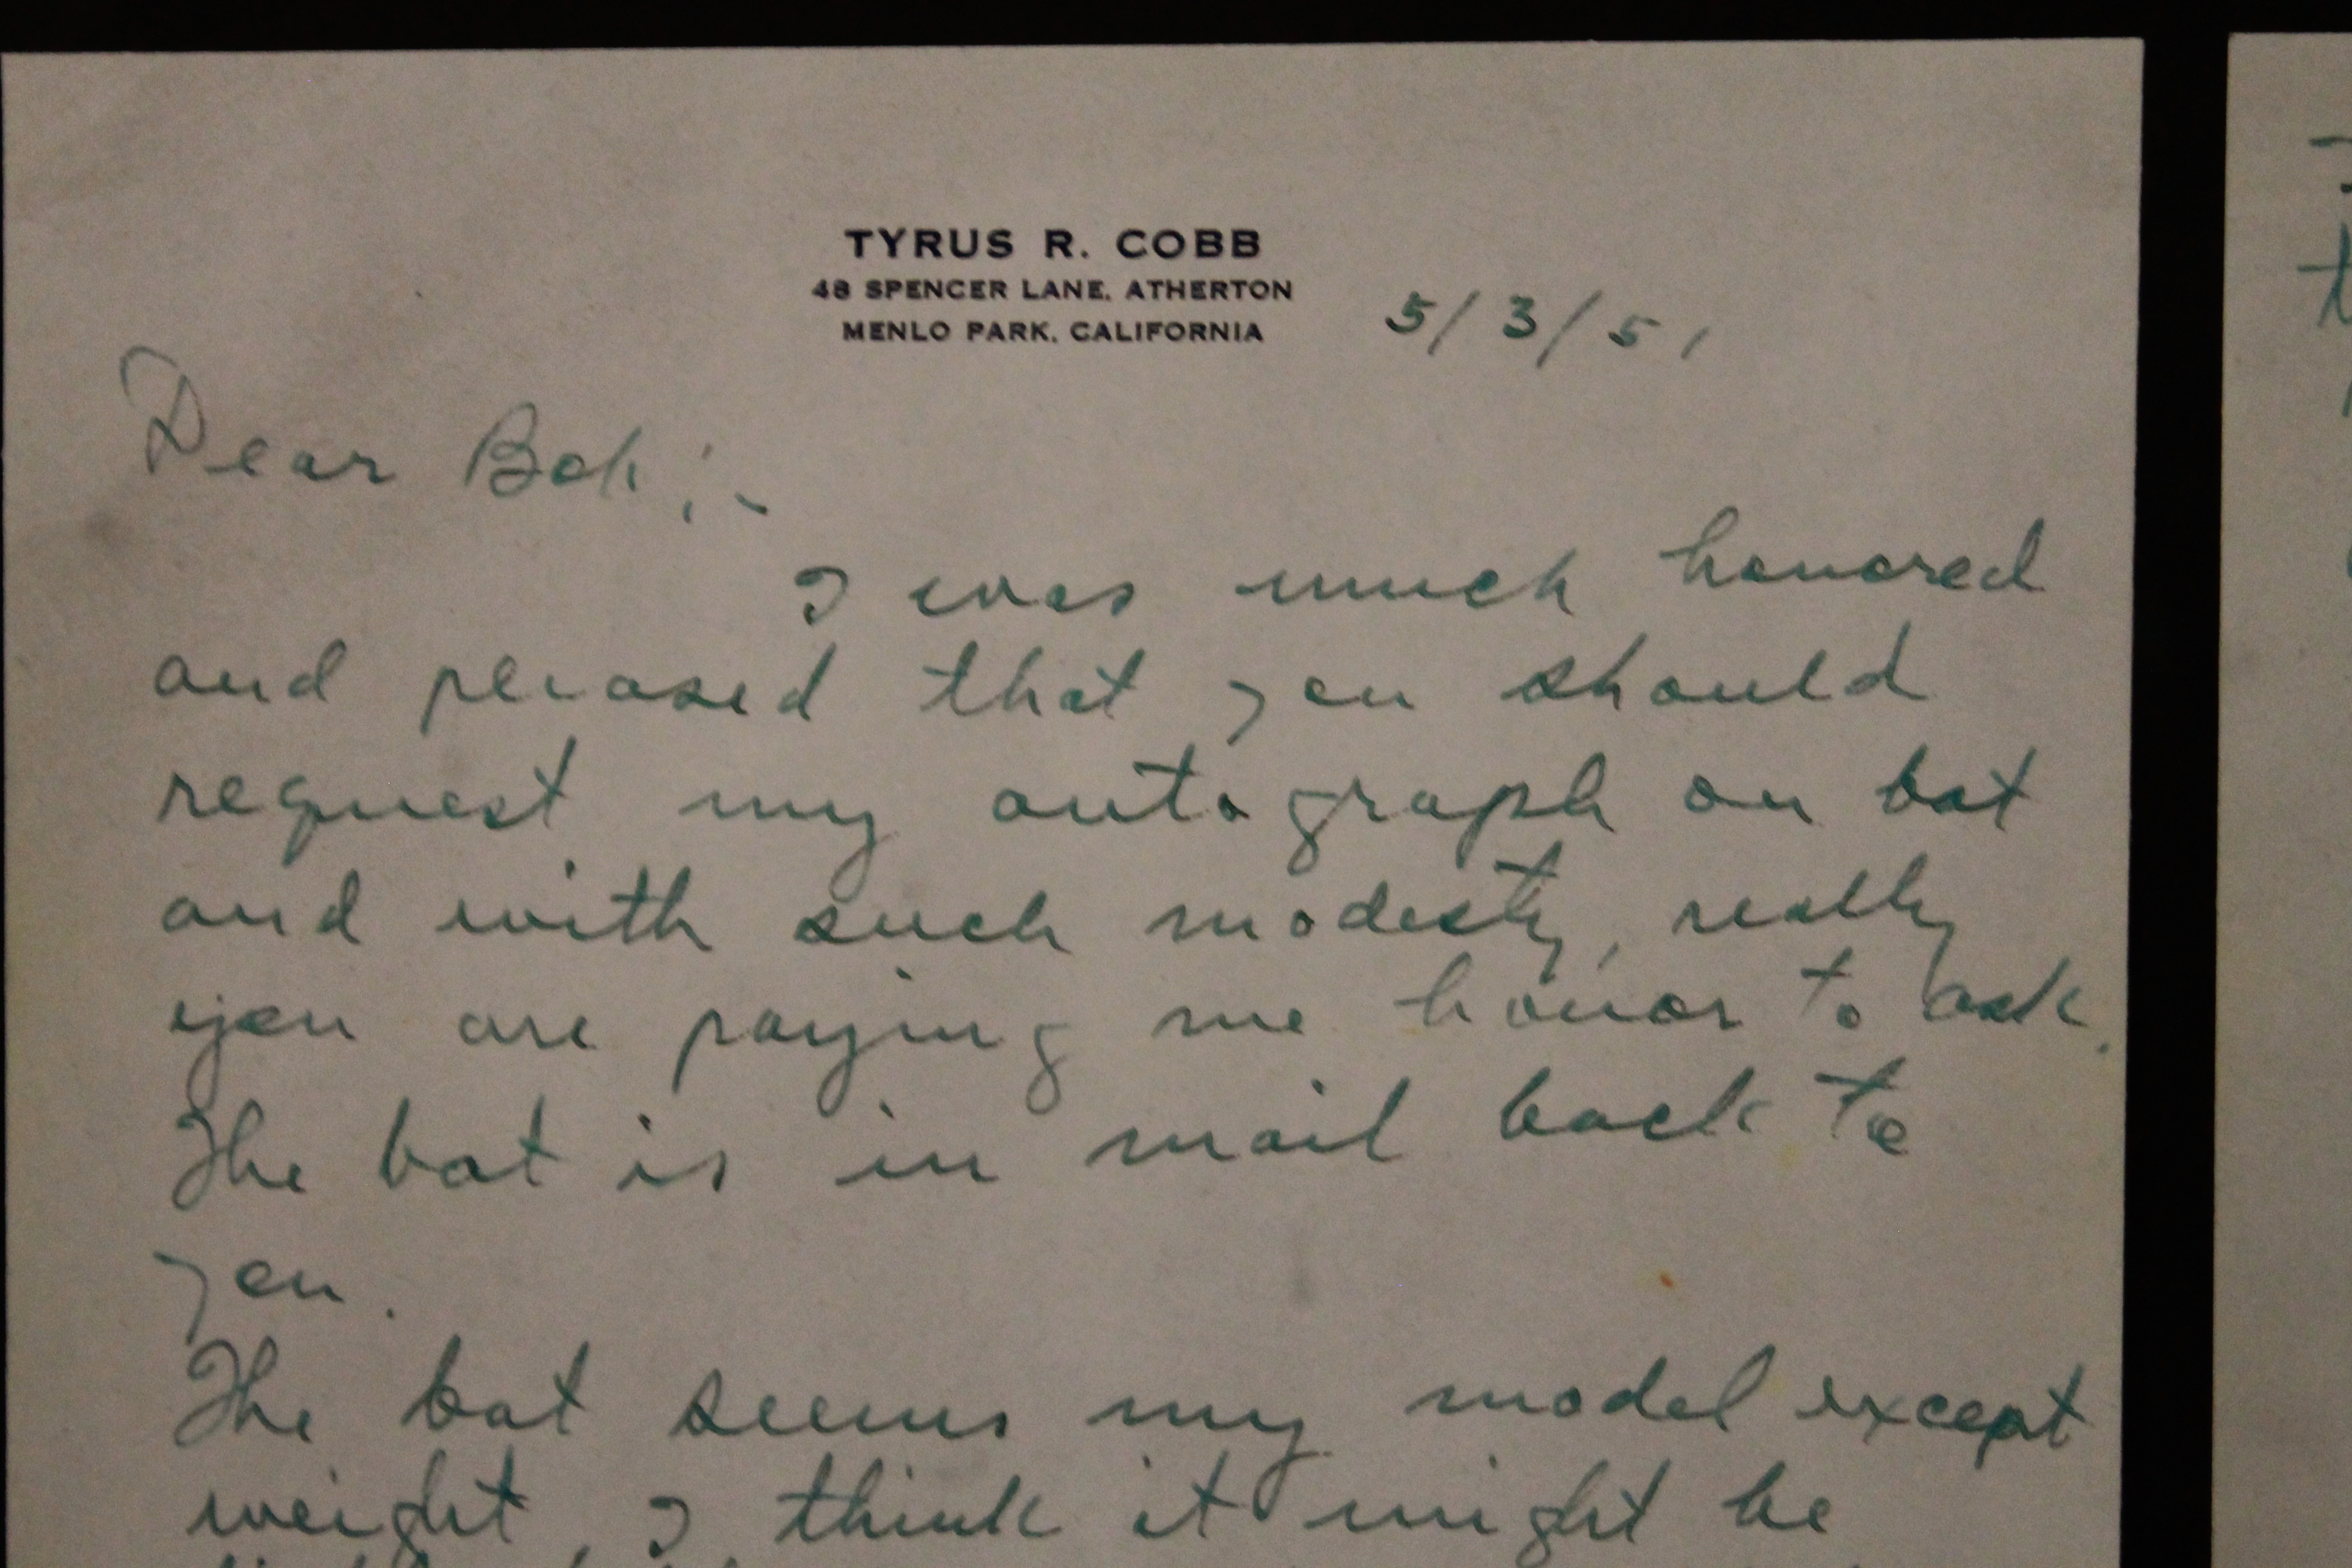 TYRUS R. COBB
48 SPENCER LANE, ATHERTON
MENLO PARK, CALIFORNIA
5/3/51
Dear Bob:-
I was much honored
and pleased that you should
request my autograph on bat
and with such modesty, really
you are paying me honor to ask.
The bat is in mail back to
you.
The bat seems my model except
weight, I think it might be